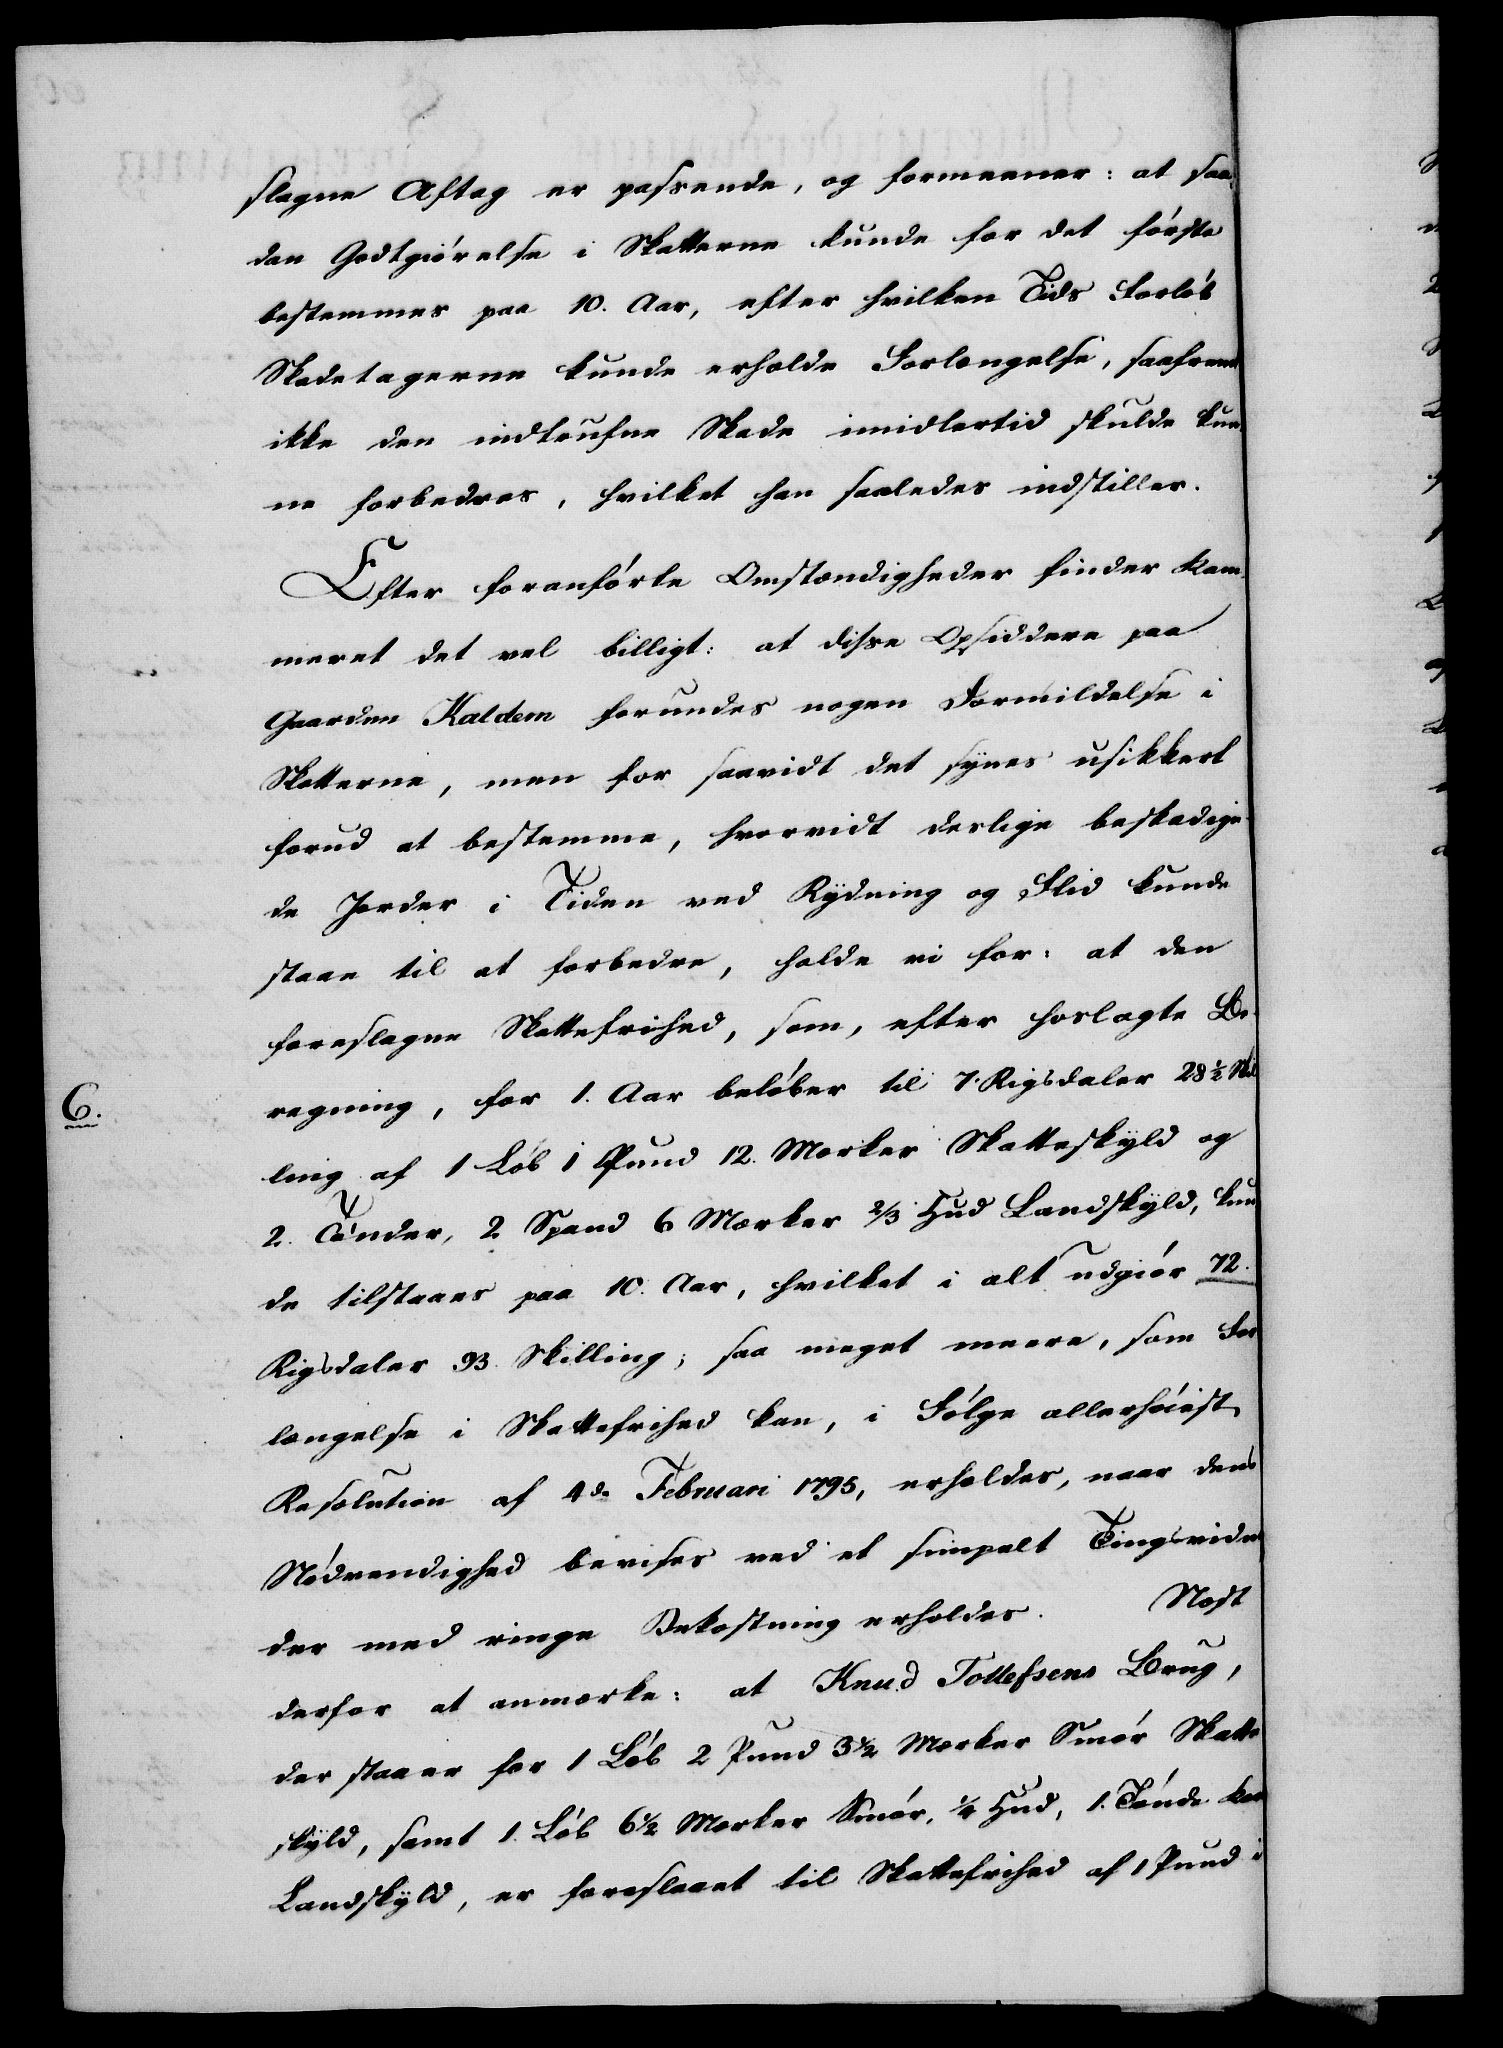 slagne Aftag er passende, og formeener: at saa-
dan Godtgiörelse i Skatterne kunde for det förste
bestemmes paa 10. Aar, efter hvilken Tids Forlöb
Skadetagerne kunde erholde Forlængelse, saafremt
ikke den indtrufne Skade imidlertid skulde kun-
ne forbedres, hvilket han saaledes indstiller.
Efter foranförte Omstændigheder finder Kam-
meret det vel billigt: at disse Opsiddere paa
Gaarden Kaldem forundes nogen Formildelse i
Skatterne, men for saavidt det synes usikkert
forud at bestemme, hvorvidt deslige beskadige-
de Jorder i Tiden ved Rydning og Flid kunde
staae til at forbedre, holde vi for: at den
foreslagne Skattefrihed, som, efter hoslagte Be-
6.
regning, for 1. Aar belöber til 7. Rigsdaler 28 1/2 Skil
ling af 1 Löb 1 Pund 12. Mærker Skatteskyld og
2. Tönder, 2 Spand 6 Mærker 2/3 Hud Landskyld, kun
de tilstaaes paa 10. Aar, hvilket i alt udgiör 72.
Rigsdaler 93. Skilling; saa meget meere, som For
længelse i Skattefrihed kan, i Fölge allerhöiest
Resolution af 4de Februari 1795, erholdes, naar dens
Nödvendighed bevises ved et simpelt Tingsvidne
der med ringe Bekostning erholdes. Nødt
derfor at anmærke: at Knud Tollefsens Brug,
der staaer for 1 Löb 2 Pund 3 1/2 Mærker Smör Skatte
skyld, samt 1. Löb 6 1/2 Mærker Smör, 1/4 Hud, 1. Tönde
Landskyld, er foreslaaet til Skattefrihed af 1 Pund i